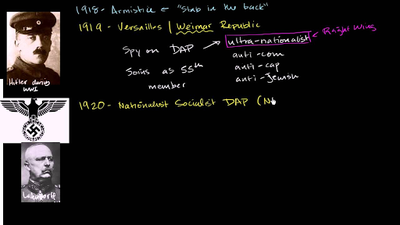 1918- Armistice ← "Stab in the back"
1919 - Versailles | Weimar Republic
Spy on DAP → ultra-nationalist ← Right Wing
anti-com
anti-cap
anti-Jewish
Joins as 55th
member
Hitler during
WWI
1920- Nationalist Socialist DAP (N